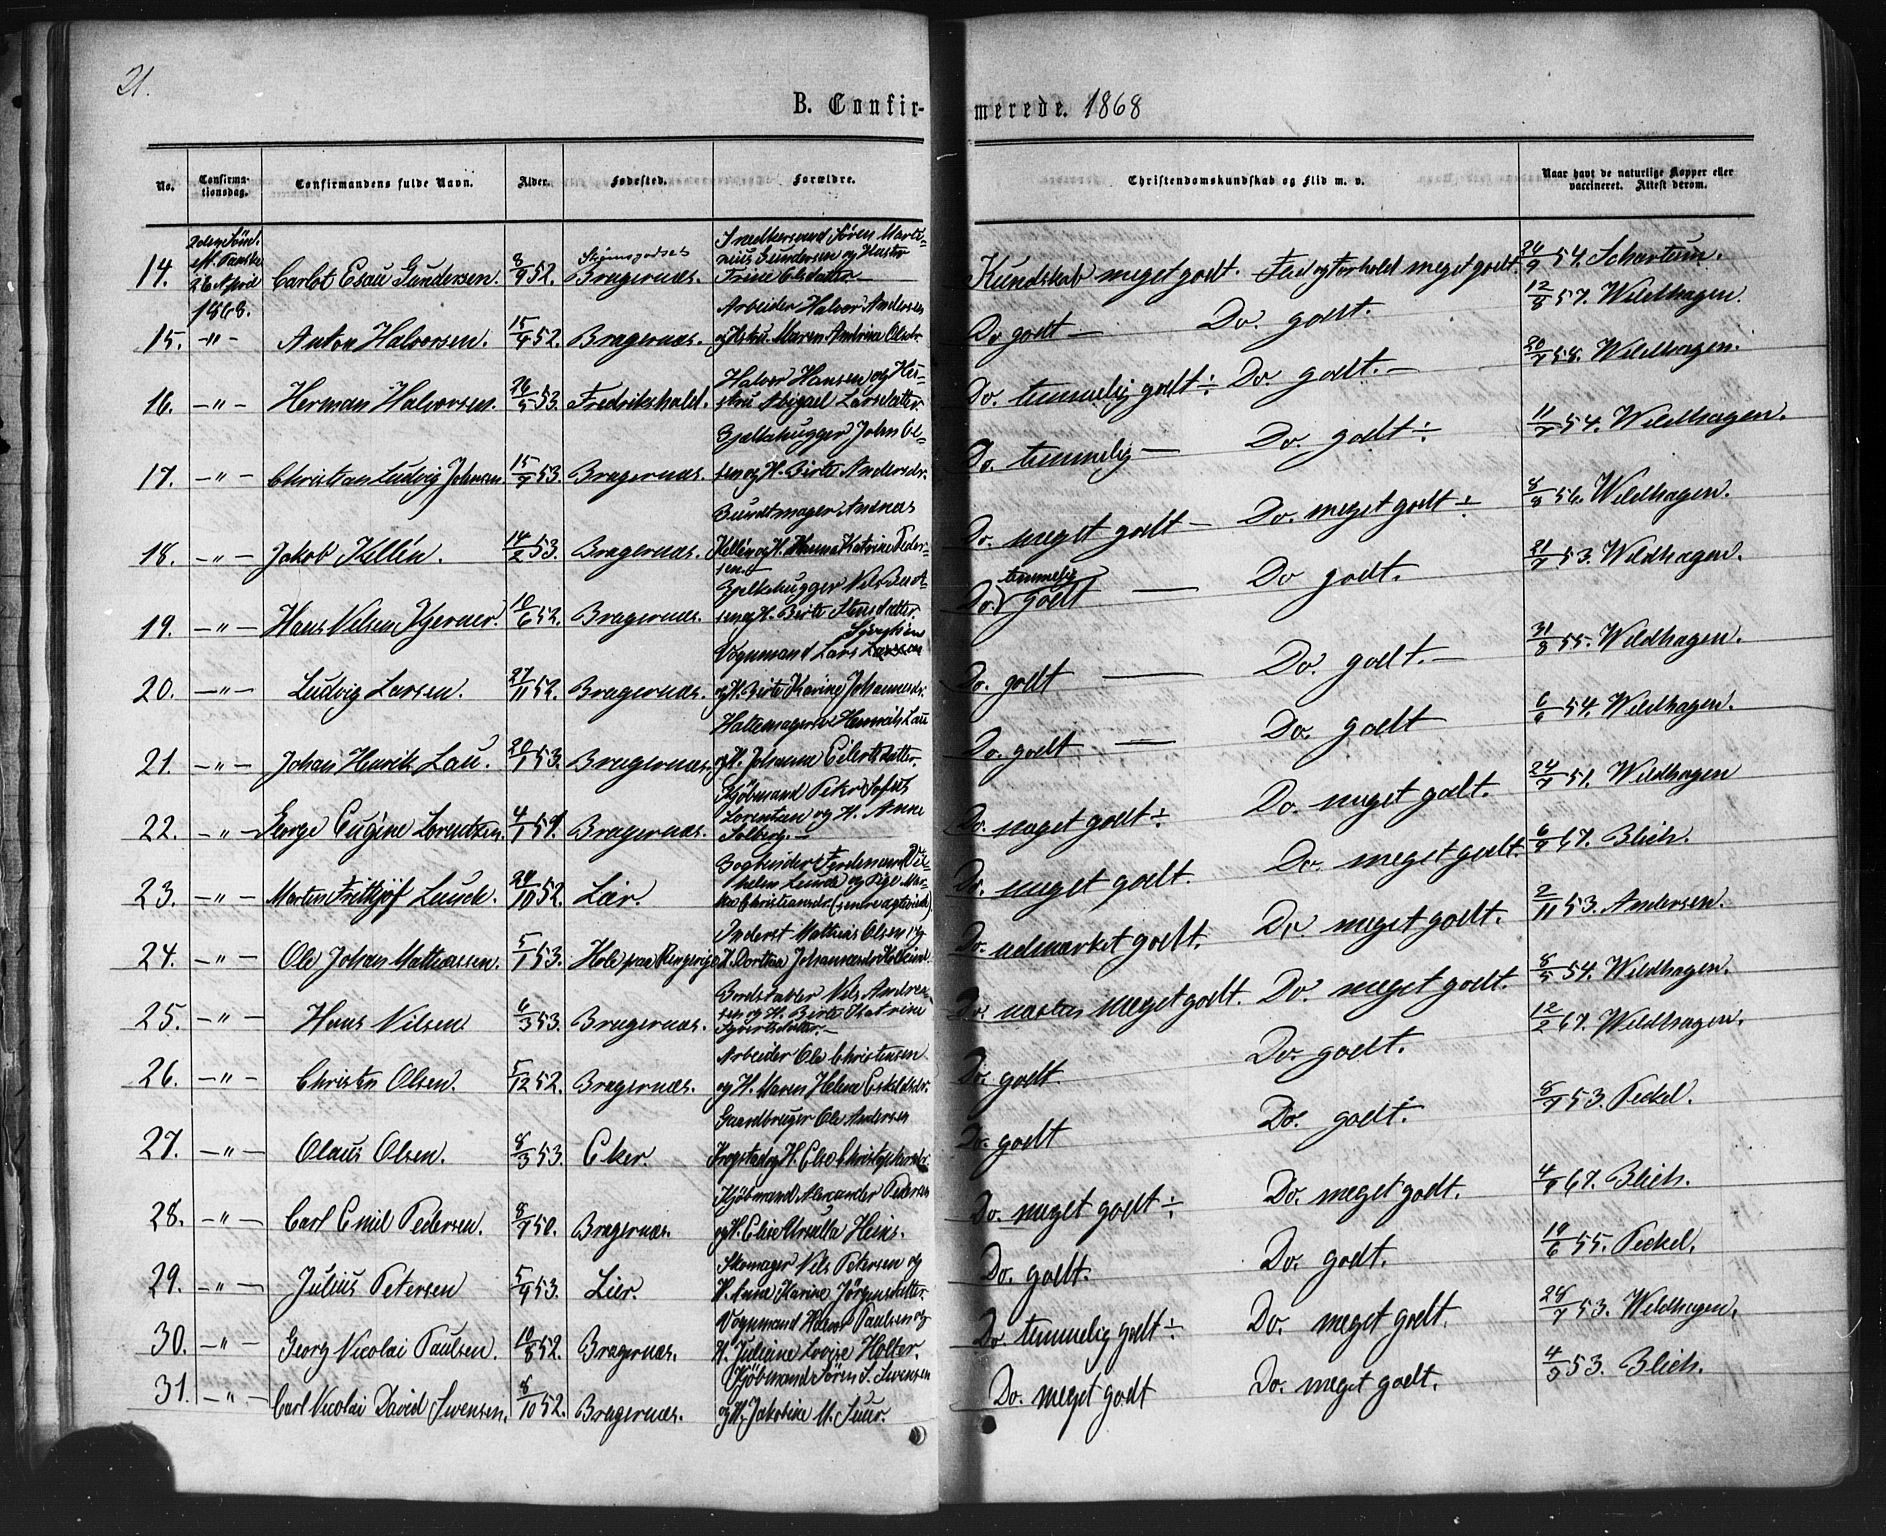 21.
B. Confirmerede. 1868
No. Confirmationsdag. Confirmandens fulde Navn. Alder. Fødested. Forældre. Christendomskundskab og Flid m. v. Naar havt de naturlige Kopper eller vaccineret. Attest derom.
14. 2den Sønd. eft. Paaske 26 April 1868. Carlot Esau Gundersen. 8/9 52. Bragernæs. Snedkersvend Søren Martinius Gundersen og Hustru Trine Olsdatter. Kundskab meget godt. Flid og Forhold meget godt. 54. Schartum.
15. -"- Anton Halvorsen. 15/4 52. Bragernæs. Arbeider Halvor Andersen og Hstru. Maren Andrina Olsdtr. Do godt — Do. godt. 12/8 57. Wildhagen.
16. -"- Herman Halvorsen. 26/5 53. Fredrikshald. Halvor Hansen og Hustru Abigael Larsdatter. Do. temmelig godt ÷ Do. godt. — 20/7 58. Wildhagen.
17. -"- Christian Ludvig Johnsen 15/7 53. Bragernæs. Bjelkehugger John Olsen og H. Birte Andersdr. Do. temmelig — Do. godt ÷ 11/7 54. Wildhagen.
18. -"- Jakob Kellén. 14/2 53. Bragernæs. Bundtmager Andreas Kellén og H. Hanna Katrine Pedersen. Do. meget godt — Do. meget godt ÷ 8/8 56. Wildhagen.
19. -"- Hans Nilsen 10/6 52. Bragernæs. Bjelkehugger Nils og H. Birte Do. temmelig godt — Do godt. 21/7 53. Wildhagen.
20. -"- Ludvig Larsen. 27/11 52. Bragernæs. Vognmand Lars og H. Birte Karine Johannesdr. Do. godt — Do. godt. — 31/8 55. Wildhagen.
21. -"- Johan Henrik Lau. 20/1 53. Bragernæs. Hattemager Henrich Lau og H. Johanne Eilertsdatter. Do. godt — Do. godt 54. Wildhagen.
22. -"- George Eugine Lorentzen. 4/1 54. Bragernæs. Kjøbmand Peter Sofus Lorentzen og H. Anne Solberg. — Do. meget godt ÷ Do. meget godt. 24/7 51. Wildhagen
23. -"- Martin Frithjof Lunde. 29/10 52. Lier. Bogbinder Ferdinand Vilhelm Lunde og Pige Christiansdr. Do. meget godt. Do. meget godt. 67. Blich.
24. -"- Ole Johan Mathiassen. 5/1 53. Hole paa Ringerige Inderst Mathias Olsen og H. Dorthea Johannesdr. Do. udmærket godt. Do. meget godt. 2/11 53. Andersen.
25. -"- Hans Nilsen 6/3 53. Bragernæs. Bordstabler Nils Andreasen og H. Birte Katrine Sjvertsdatter. — Do. næsten meget godt. Do. meget godt. 8/5 54. Wildhagen.
26. -"- Christen Olsen. 5/12 52. Bragernæs. Arbeider Ole Christensen og H. Maren Helene Eskildsdr. Do. godt. Do. godt. 12/2 67. Wildhagen.
27. -"- Olaus Olsen. 8/3 53. Eker. Gaardbruger Ole Andersen og H. Else Do. godt Do. godt. 8/7 53. Peckel.
28. -"- Carl Emil Pedersen. 8/7 50. Bragernæs. Kjøbmand Alexander Pedersen og H. Elise Ursulla Heins. Do. meget godt ÷ Do. meget godt. 67. Blich.
29. -"- Julius Petersen 5/9 53. Lier. Skomager Nils Petersen og H. Anne Karine Jørgensdatter. Do. godt. Do. godt. 19/6 55. Peckel.
30. -"- Georg Nicolai Paulsen. 10/8 52. Bragernæs. Vognmand Paulsen og H. Juliane Lovise Holter. Do temmelig godt ÷ Do. meget godt. 28/7 53. Wildhagen.
31. -"- Carl Nicolai David Svensen. 8/10 52. Bragernæs. Kjøbmand Søren S. Svensen og H. Jakobine M. Suur. Do. meget godt Do. meget godt. 53. Blich.